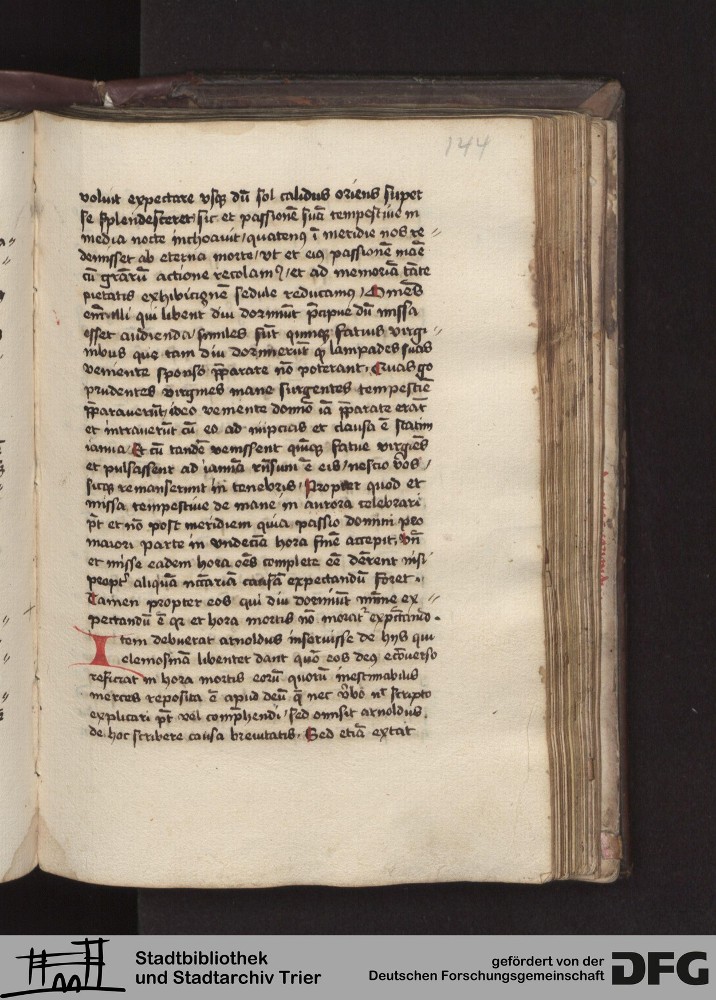 144
voluit expectare vsqꝫ dū sol calidus oriens super
se splendesceret sic et passionē suā tempestiue in
media nocte inchoauit / quatenꝰ ī meridie nos re〃
demisset ab eterna morte / vt et eiꝰ passionē
cū actione recolamꝰ / et ad memoriā
pietatis sedule reducamꝰ /
qui libent diu dormiūt p̄cipue dū missa
esset audienda / similes sūt quinqꝫ fatuis virgi〃
nibus que tam diu dormierūt ꝙ lampades suas
veniente sponso p̄parare nō poterant. Quas go
prudentes virgines mane surgentes
p̄parauerūt / ideo veniente domīo iā p̄parate erāt
et intrauerūt cū eo ad nupcias et clausa ē statim
ianua / Et cū tandē venissent quīqꝫ fatue virgīes
et pulsassent ad ianuā rn̄sum ē eis / nescio vōs /
sicqꝫ remanserunt in tenebris / Propter quod et
missa tempestiue de mane in aurora celebrari
pt̄ et nō post meridiem quia passio domini pro
maiori parte in vndecīa hora finē accepit. vn̄
et misse eadem hora oēs complete eē dēbent nisi
propt᷑ aliquā nc̄cariā causā expectandū foret.
Tamen propter eos qui diu dormiūt mīme ex〃
pectandū ē qr et hora mortis nō morat᷑
Item debuerat arnoldus inseruisse de hijs qui
elemosinā libenter dant quō eos deꝰ ecōuerso
reficiat in hora mortis eorū quorū inestimabilis
merces reposita ē apud deū q̄ nec v̄bo nc̄ scripto
explicari pt̄ vel comp̄hendi / sed omisit arnoldus
de hoc scribere causa breuitatis. Sed etiā extat
Stadtbibliothek
und Stadtarchiv Trier
gefördert von der
Deutschen Forschungsgemeinschaft
DFG